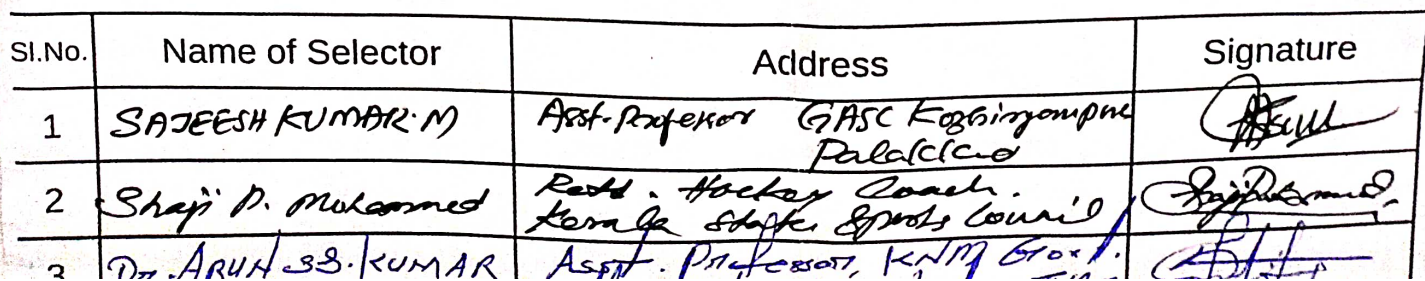 Sl.No. Name of Selector Address Signature
1 SAJEESH KUMAR.M Asst. Professor GASC Kozhinjampara
Palakkad
2 Shaji P. Mohammed Retd. Hockey Coach.
Kerala State Sports Council
3 Dr. ARUN SS. KUMAR Asst. Professor, KNM Govt.